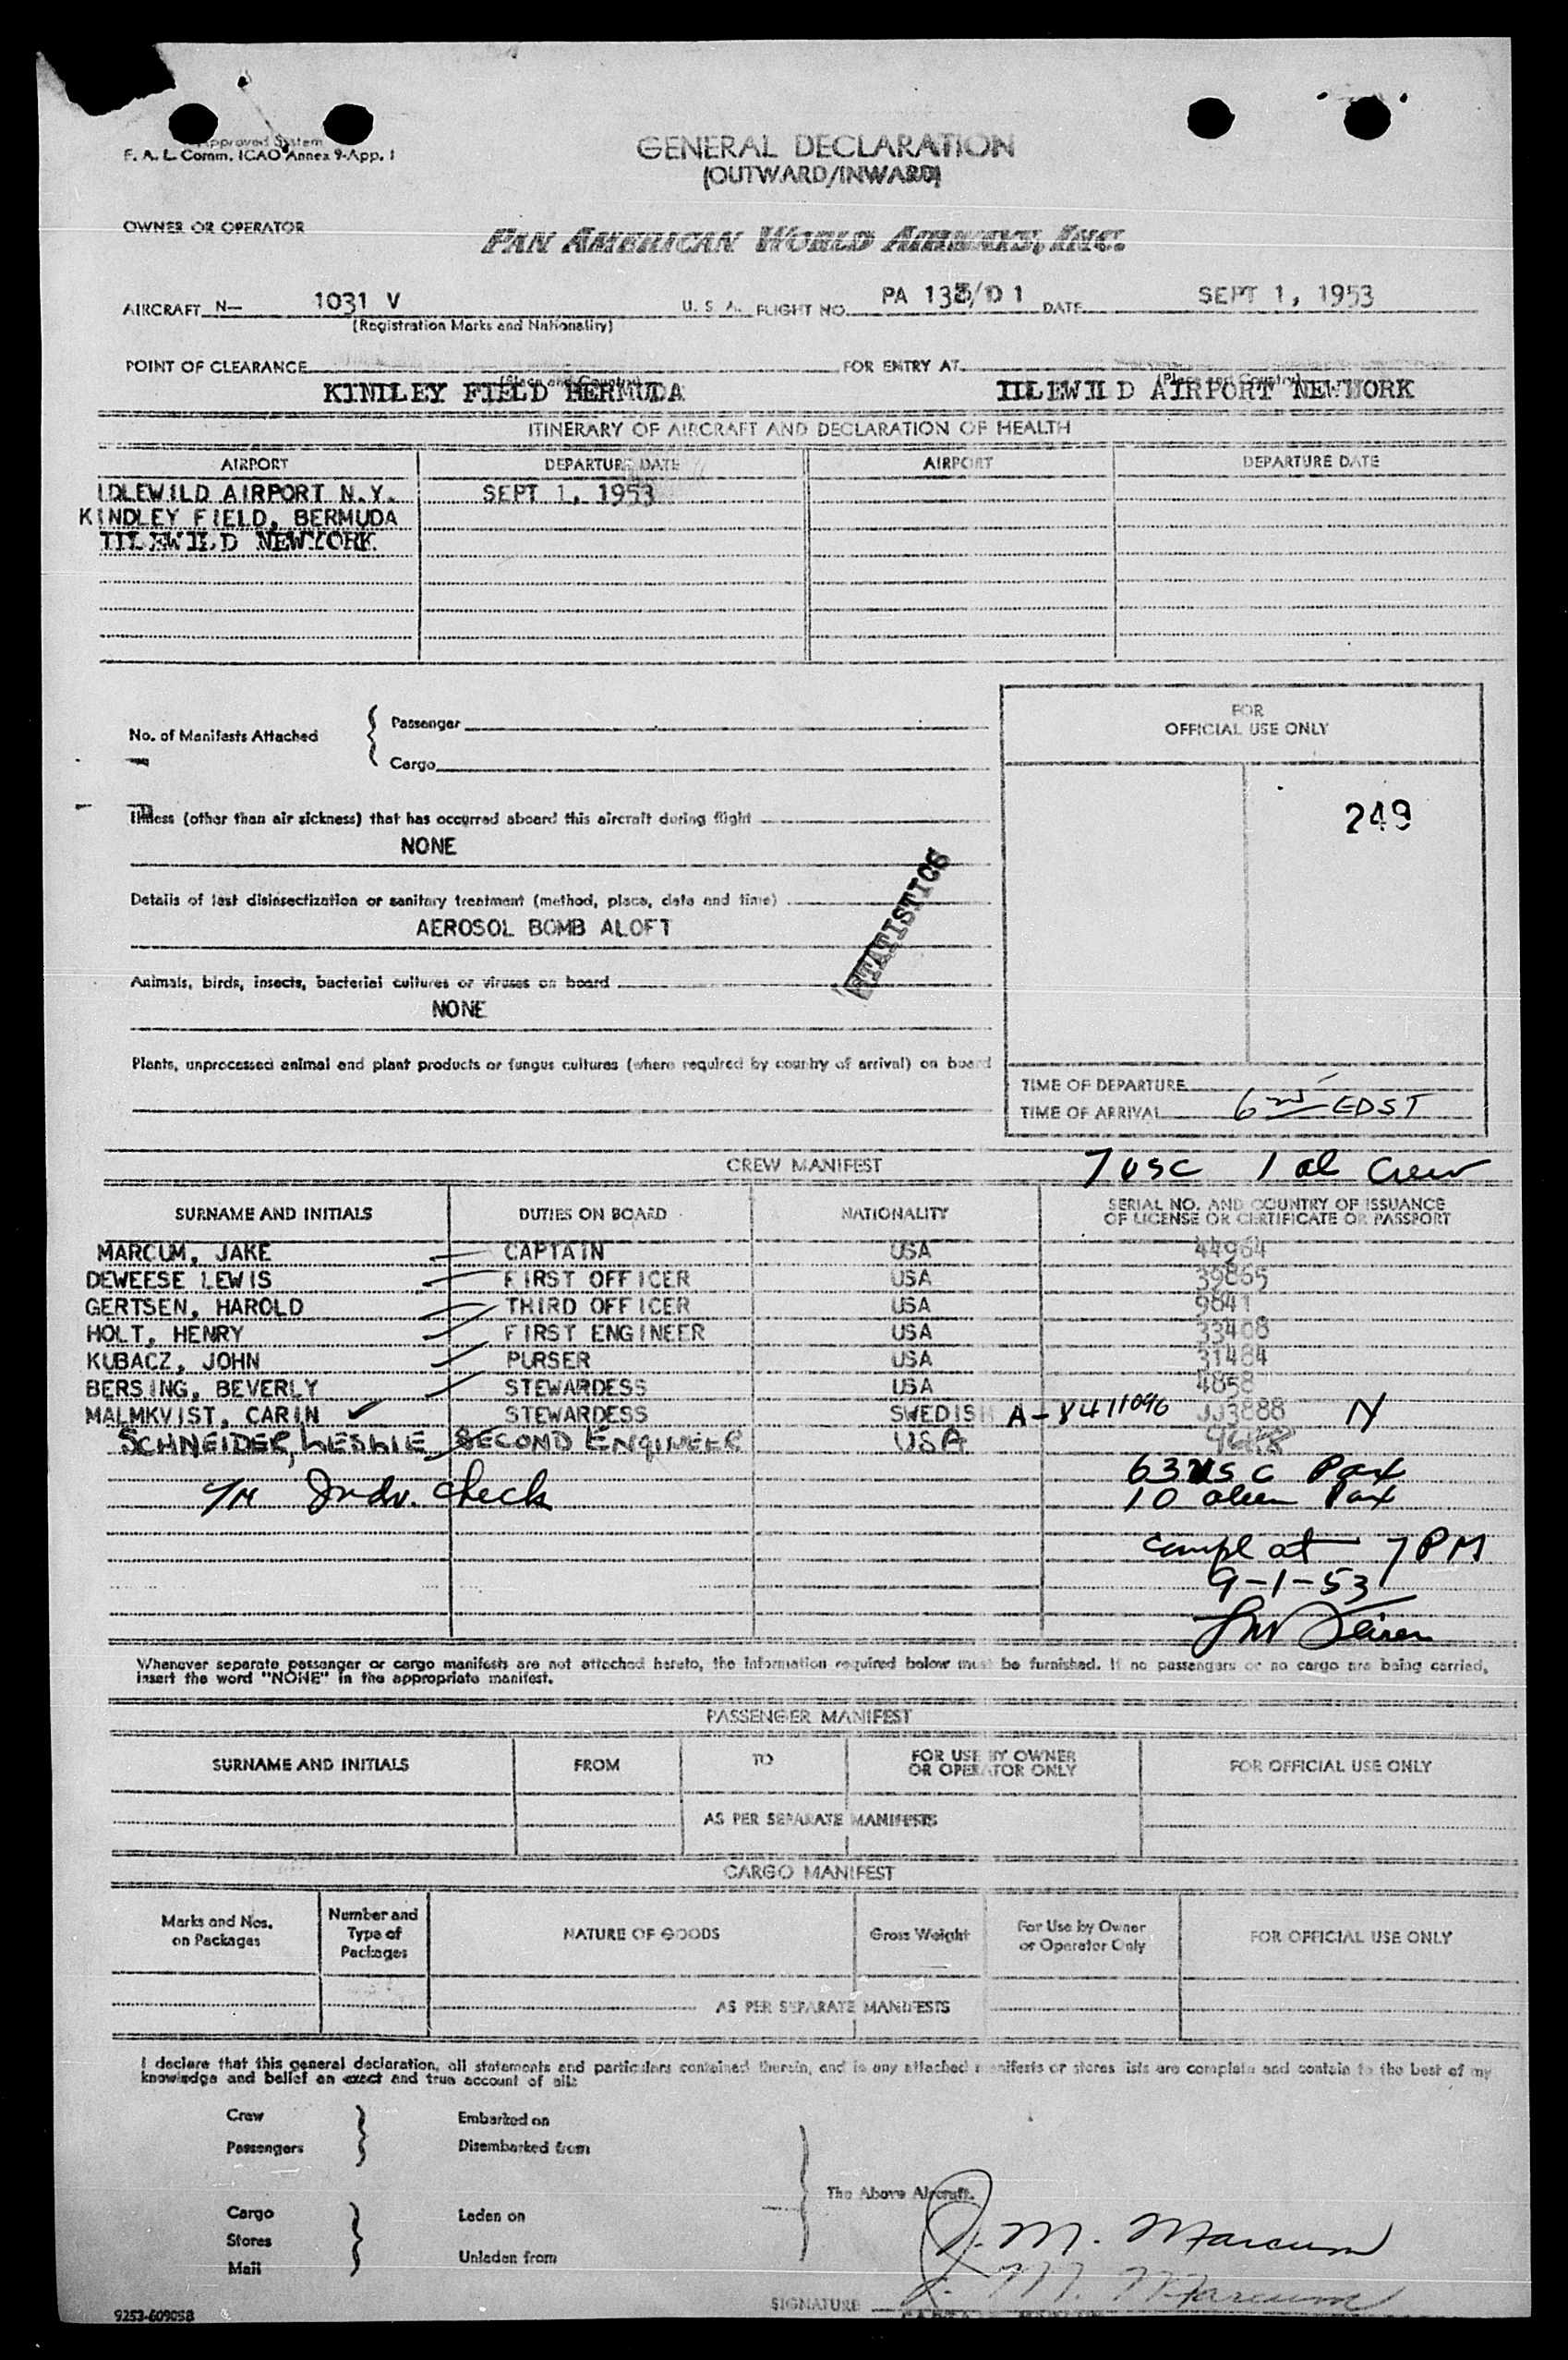 Approved System
F. A. L. Comm. ICAO Annex 9-App. 1
GENERAL DECLARATION
(OUTWARD/INWARD)
OWNER OR OPERATOR
PAN AMERICAN WORLD AIRWAYS, INC.
AIRCRAFT N— 1031 V U. S. A. FLIGHT NO. PA 133/D 1 DATE SEPT 1, 1953
(Registration Marks and Nationality)
POINT OF CLEARANCE FOR ENTRY AT
(Place and Country) (Place and Country)
KINDLEY FIELD BERMUDA IDLEWILD AIRPORT NEWYORK
ITINERARY OF AIRCRAFT AND DECLARATION OF HEALTH
AIRPORT DEPARTURE DATE AIRPORT DEPARTURE DATE
IDLEWILD AIRPORT N.Y. SEPT 1, 1953
KINDLEY FIELD, BERMUDA
IDLEWILD NEWYORK
FOR
OFFICIAL USE ONLY
No. of Manifests Attached
Passenger
Cargo
249
Illness (other than air sickness) that has occurred aboard this aircraft during flight
NONE
STATISTICS
Details of last disinsectization or sanitary treatment (method, place, date and time)
AEROSOL BOMB ALOFT
Animals, birds, insects, bacterial cultures or viruses on board
NONE
Plants, unprocessed animal and plant products or fungus cultures (where required by country of arrival) on board
TIME OF DEPARTURE
TIME OF ARRIVAL EDST
CREW MANIFEST 7 USC 1 al Crew
SURNAME AND INITIALS DUTIES ON BOARD NATIONALITY SERIAL NO. AND COUNTRY OF ISSUANCE
OF LICENSE OR CERTIFICATE OR PASSPORT
MARCUM, JAKE CAPTAIN USA 44964
DEWEESE LEWIS FIRST OFFICER USA 39865
GERTSEN, HAROLD THIRD OFFICER USA 9641
HOLT, HENRY FIRST ENGINEER USA 33408
KUBACZ, JOHN PURSER USA 31484
BERSING, BEVERLY STEWARDESS USA 4858
MALMKVIST, CARIN ✓ STEWARDESS SWEDISH A-8411096 JJ3888 N
SCHNEIDER, LESLIE SECOND ENGINEER USA
63 USC Pax
C/M Indv. check 10 alien Pax
compl at 7 PM
9-1-53
Whenever separate passenger or cargo manifests are not attached hereto, the information required below must be furnished. If no passengers or no cargo are being carried,
insert the word "NONE" in the appropriate manifest.
PASSENGER MANIFEST
SURNAME AND INITIALS FROM TO FOR USE BY OWNER
OR OPERATOR ONLY FOR OFFICIAL USE ONLY
AS PER SEPARATE MANIFESTS
CARGO MANIFEST
Marks and Nos.
on Packages Number and
Type of
Packages NATURE OF GOODS Gross Weight For Use by Owner
or Operator Only FOR OFFICIAL USE ONLY
AS PER SEPARATE MANIFESTS
I declare that this general declaration, all statements and particulars contained therein, and in any attached manifests or stores lists are complete and contain to the best of my
knowledge and belief an exact and true account of all:
Crew Embarked on
Passengers Disembarked from
The Above Aircraft.
Cargo Laden on
Stores
Mail Unladen from
J. M. Marcum
SIGNATURE J. M. Marcum
9253-609058